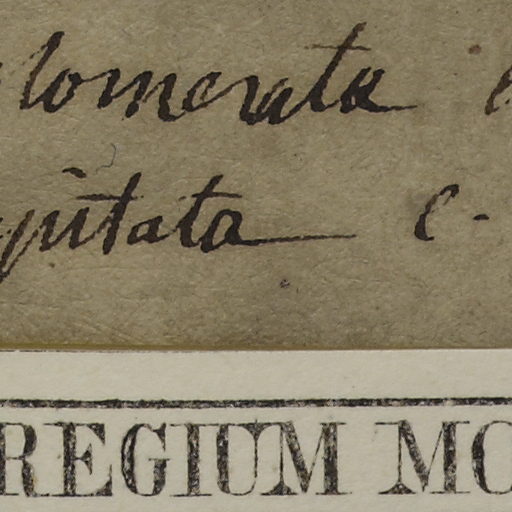 lomerata e
pitata e-
REGIUM MO